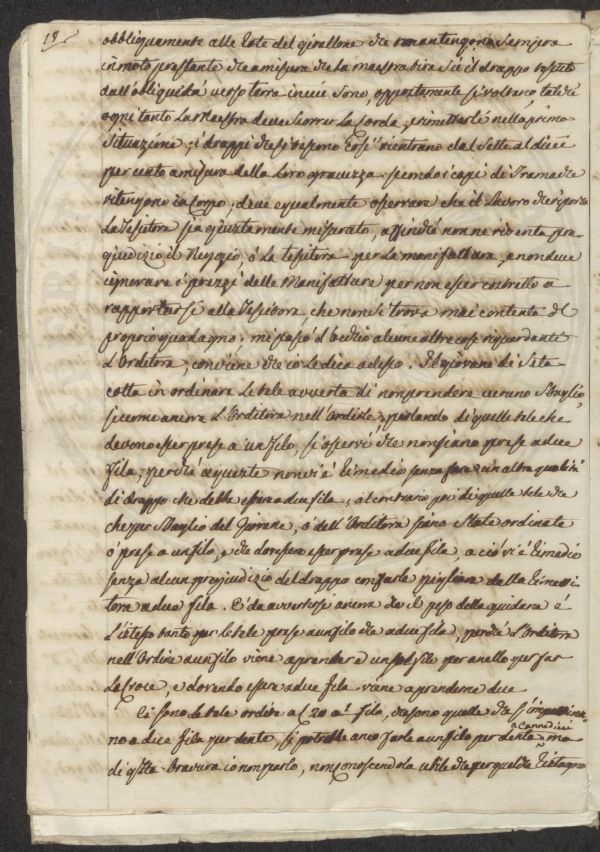 18
obbliquamente alle Rote del girallone che mantengono sempre
in moto prestante che a misura che la maestra tira sù il drappo tessuto
dall'obliquità verso terra in cui sono, oppostamente si voltano, talche
ogni tanto la Maestra deve scorrer la Corda, e rimetterle nella prima
situazione; i drappi che si tessono così rientrano dal sette al dieci
per cento a misura della loro gravezza secondo i capi di Trama che
ritengono in Corpo; deve egualmente osservare che il lavoro che riporta
la Tessitora sia giustamente misurato, affinchè non ne risenta pre-
giudizio il Negozio, ò la tessitora per la manifattura, e non deve
ignorare i prezzi delle Manifatture per non esser costretto a
rapportarsi alla Tessitora, che non si trova mai contenta del
proprio guadagno; mi passò d'occhio alcune altre cose riguardante
l'Orditora, conviene che io le dica adesso. Il giovane di Seta
cotta in ordinare le tele avverta di non prendere veruno Sbaglio,
siccome ancora l'Orditora nell'Ordirle, parlando di quelle tele che
devono esser prese a un filo, si osservi che non siano prese a due
fila, perchè a queste non vi è rimedio senza fare un altra qualità
di drappo che debba essere a due fila; al contrario poi di quelle tele che
che per Sbaglio del Giovane, ò dell'Orditora siano State ordinate
ò prese a un filo, e che dovessero esser prese a due fila, a ciò vi è rimedio
senza alcun pregiudizio del drappo con farle pigliare dalla Rimetti
tora a due fila. E' da avvertirsi ancora che il peso della guidara è
l'istesso tanto per le tele prese a un filo che a due fila, perchè l'Orditora
nell'Ordire a un filo viene a prendere un sol filo per anello per far
la Croce, e dovendo essere a due fila viene a prenderne due
Ci sono le tele ordite a C 20 a 1 filo, che sono quelle che si
no a due fila per dente, si potrebbe anco farle a un filo per dente ma
di questa bravura io non parlo, non conoscendola utile che per qualche